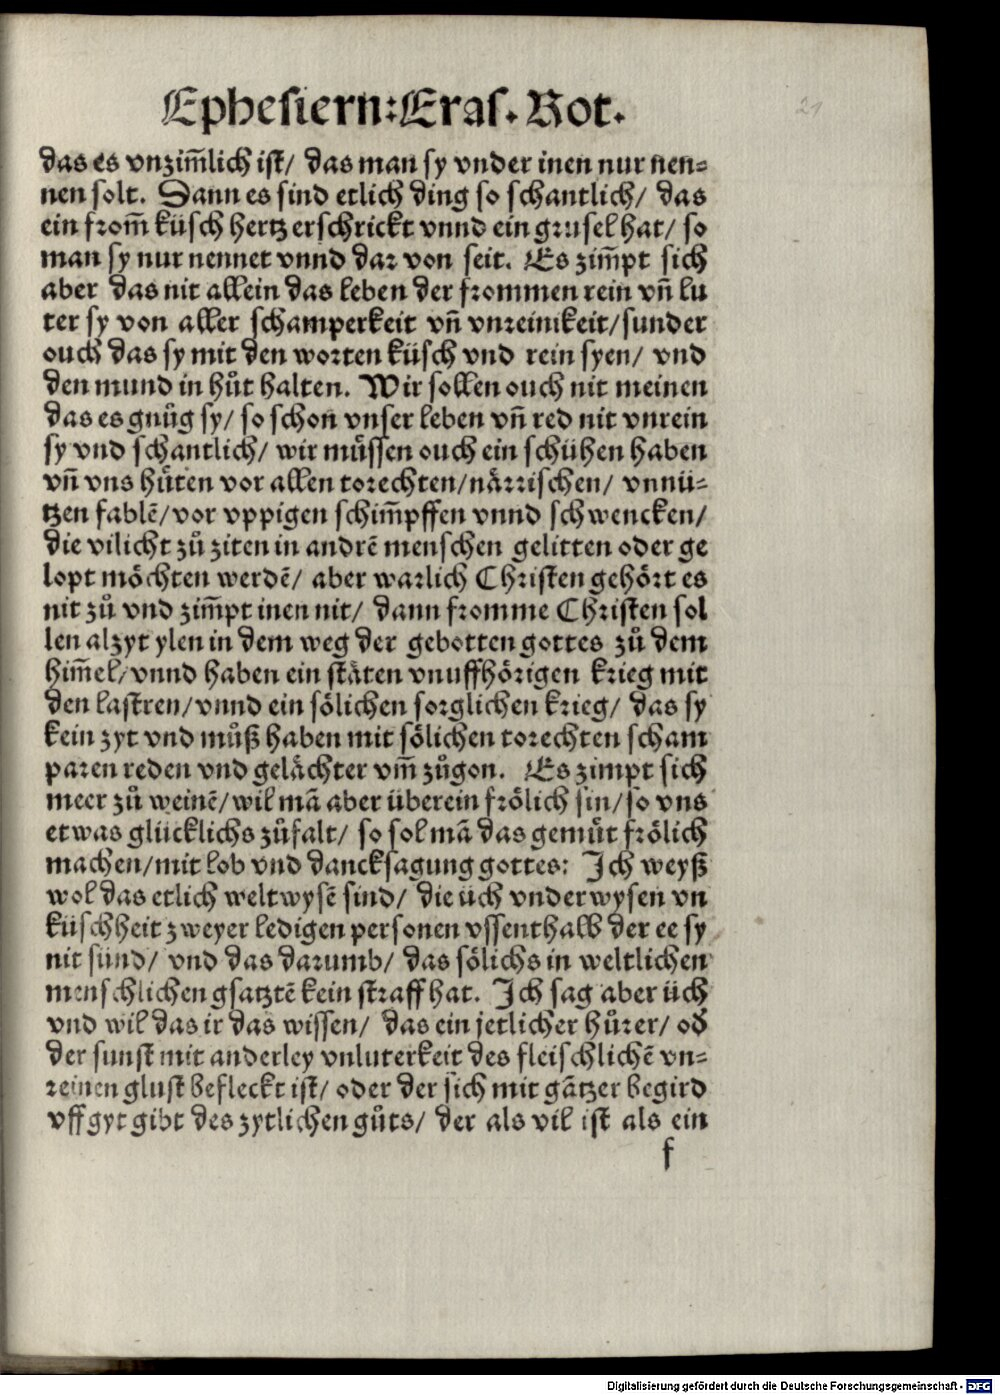 Ephesiern: Eras. Rot.
21
das es vnzim̃lich ist/ das man sy vnder inen nur nen⸗
nen solt. Dann es sind etlich ding so schantlich/ das
ein from̃ küsch hertz erschrickt vnnd ein grusel hat/ so
man sy nur nennet vnnd dar von seit. Es zim̃pt sich
aber das nit allein das leben der frommen rein vñ lu
ter sy von aller schamperkeit vñ vnreinikeit/ sunder
ouch das sy mit den worten küsch vnd rein syen/ vnd
den mund in hůt halten. Wir sollen ouch nit meinen
das es gnůg sy/ so schon vnser leben vñ red nit vnrein
sy vnd schantlich/ wir müssen ouch ein schühen haben
vñ vns hüten vor allen torechten/ närrischen/ vnnü⸗
tzen fablẽ/ vor vppigen schim̃pffen vnnd schwencken/
die vilicht zů ziten in andrẽ menschen gelitten oder ge
lopt möchten werdẽ/ aber warlich Christen gehört es
nit zů vnd zim̃pt inen nit/ dann fromme Christen sol
len alzyt ylen in dem weg der gebotten gottes zů dem
him̃el/ vnnd haben ein stäten vnuffhörigen krieg mit
den lastren/ vnnd ein sölichen sorglichen krieg/ das sy
kein zyt vnd můß haben mit sölichen torechten scham
paren reden vnd gelächter vm̃ zůgon. Es zimpt sich
meer zů weinẽ/ wil mã aber überein frölich sin/ so vns
etwas glücklichs zůfalt/ so sol mã das gemüt frölich
machen/ mit lob vnd dancksagung gottes: Ich weyß
wol das etlich weltwysẽ sind/ die üch vnderwysen vn
küschheit zweyer ledigen personen vssenthalb der ee sy
nit sünd/ vnd das darumb/ das sölichs in weltlichen
menschlichen gsatztẽ kein straff hat. Ich sag aber üch
vnd wil das ir das wissen/ das ein jetlicher hůrer/ od
der sunst mit anderley vnluterkeit des fleischlichẽ vn⸗
reinen glust befleckt ist/ oder der sich mit gãtzer begird
vff gyt gibt des zytlichen gůts/ der als vil ist als ein
f
Digitalisierung gefördert durch die Deutsche Forschungsgemeinschaft - DFG